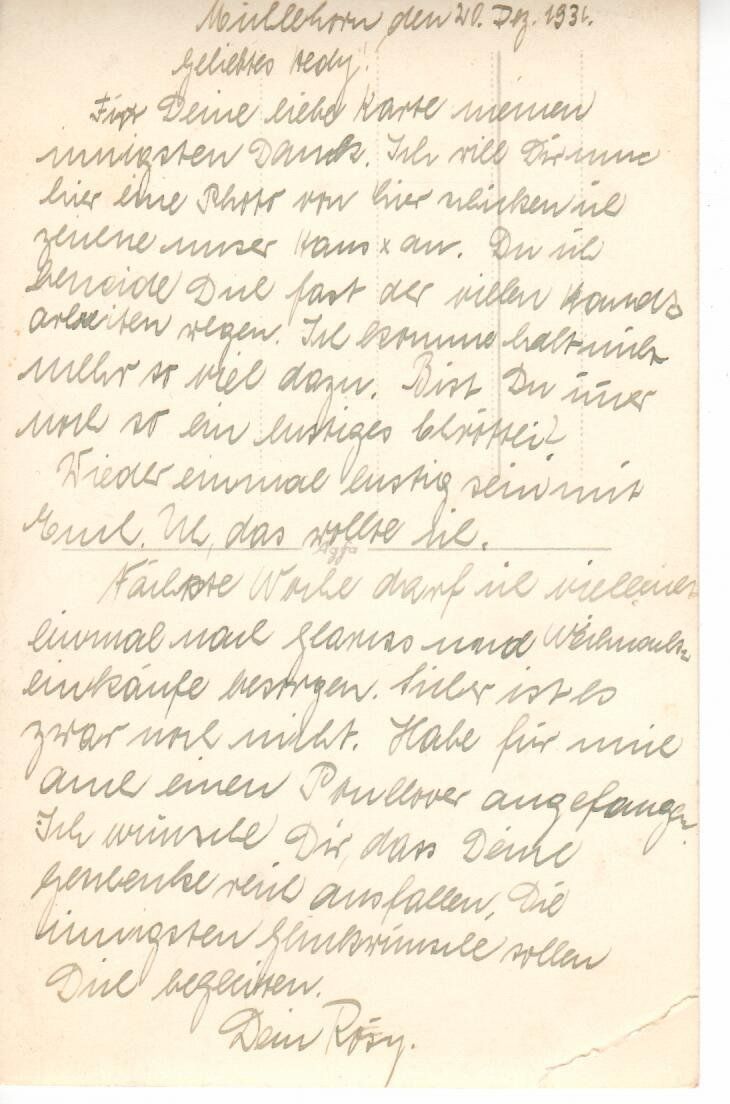 Mühlehorn, den 20. Dez. 1931.
Geliebtes Hedy!
Für Deine liebe Karte meinen
innigsten Dank. Ich will Dir nun
hier eine Photo von hier schicken ich
zeichne unser Haus x an. Du ich
beneide Dich fast der vielen Hand=
arbeiten wegen. Ich komme halt nicht
mehr so viel dazu. Bist Du im̅er
noch so ein lustiges
Wieder einmal lustig sein mit
Euch. Uh, das wollte ich.
Agfa
Nächste Woche darf ich vielleicht
einmal nach Glarus und Weihnachts=
einkäufe besorgen. Sicher ist es
zwar noch nicht. Habe für mich
auch einen Poullover angefangen.
Ich wünsche Dir, dass Deine
Geschenke reich ausfallen. Die
innigsten Glückwünsche sollen
Dich begleiten.
Dein Rösy.